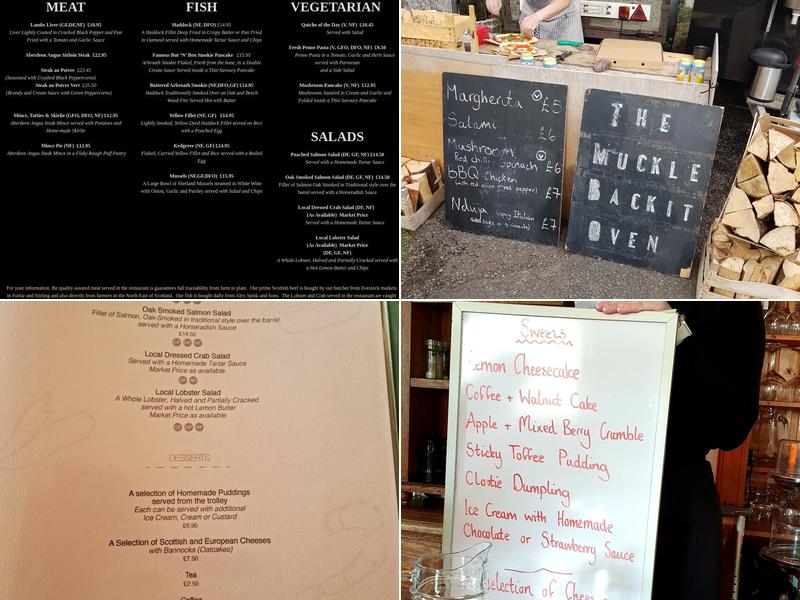 MEAT
Lambs Liver (GF,DF,NF) £10.95
Liver Lightly Coated in Cracked Black Pepper and Pan
Fried in Tomato and Garlic Sauce
Aberdeen Angus Sirloin Steak £22.95
Steak au Poivre £23.45
(Seasoned with Crushed Black Peppercorns)
Steak au Poivre Vert £25.50
(Brandy and Cream Sauce with Green Peppercorns)
Mince, Tatties & Skirlie (GFO, DFO, NF) £12.95
Aberdeen Angus Steak Mince served with Potatoes and
Home-made Skirlie
Mince Pie (NF) £12.95
Aberdeen Angus Steak Mince in a Flaky Rough Puff Pastry
FISH
Haddock (NF, DFO) £14.95
A Haddock Fillet Deep Fried in Crispy Batter or Pan Fried
in Oatmeal served with Homemade Tartar Sauce and Chips
Famous But 'N' Ben Smokie Pancake £15.95
Arbroath Smokie Flaked, Fresh from the bone, in a Double
Cream Sauce Served inside a Thin Savoury Pancake
Buttered Arbroath Smokie (NF,DFO,GF) £14.95
Haddock Traditionally Smoked Over an Oak and Beech
Wood Fire Served Hot with Butter
Yellow Fillet (NF, GF) £14.95
Lightly Smoked, Yellow Dyed Haddock Fillet served on Rice
with a Poached Egg
Kedgeree (NF, GF) £14.95
Flaked, Curried Yellow Fillet and Rice served with a Boiled
Egg
Mussels (NF,GF,DFO) £15.95
A Large Bowl of Shetland Mussels steamed in White Wine
with Onion, Garlic and Parsley served with Salad and Chips
VEGETARIAN
Quiche of the Day (V, NF) £10.45
Served with Salad
Fresh Penne Pasta (V, GFO, DFO, NF) £9.50
Penne Pasta in a Tomato, Garlic and Herb Sauce
served with Parmesan
and a Side Salad
Mushroom Pancake (V, NF) £12.95
Mushrooms Sautéed in Cream and Garlic and
Folded inside a Thin Savoury Pancake
SALADS
Poached Salmon Salad (DF, GF, NF) £14.50
Served with a Homemade Tartar Sauce
Oak Smoked Salmon Salad (DF, GF, NF) £14.50
Fillet of Salmon Oak Smoked in Traditional style over the
barrel served with a Horseradish Sauce
Local Dressed Crab Salad (DF, NF)
(As Available) Market Price
Served with a Homemade Tartar Sauce
Local Lobster Salad
(As Available) Market Price
(DF, GF, NF)
A Whole Lobster, Halved and Partially Cracked served with
a Hot Lemon Butter and Chips
For your information, the quality assured meat served in the restaurant is guarantees full traceability from farm to plate. Our prime Scottish beef is bought by our butcher from livestock markets
in Forfar and Stirling and also directly from farmers in the North East of Scotland. Our fish is bought daily from Alex Spink and Sons. The Lobster and Crab served in the restaurant are caught
Margherita V £5
Salami £6
Mushroom V
Red chilli spinach £6
BBQ Chicken
(with red onion & red pepper) £7
Nduja (spicy Italian
sausage & spinach) £7
THE
MUCKLE
BACKIT
OVEN
Oak Smoked Salmon Salad
Fillet of Salmon, Oak-Smoked in traditional style over the barrel
served with a Horseradish Sauce
£14.50
GF DF NF
Local Dressed Crab Salad
Served with a Homemade Tartar Sauce
Market Price as available
DF NF
Local Lobster Salad
A Whole Lobster, Halved and Partially Cracked
served with a hot Lemon Butter
Market Price as available
GF DF NF
DESSERTS
A selection of Homemade Puddings
served from the trolley
Each can be served with additional
Ice Cream, Cream or Custard
£6.95
A Selection of Scottish and European Cheeses
with Bannocks (Oatcakes)
£7.50
Tea
£2.50
Coffee
Sweets
Lemon Cheesecake
Coffee + Walnut Cake
Apple + Mixed Berry Crumble
Sticky Toffee Pudding
Clootie Dumpling
Ice Cream with Homemade
Chocolate or Strawberry Sauce
Selection of Cheese